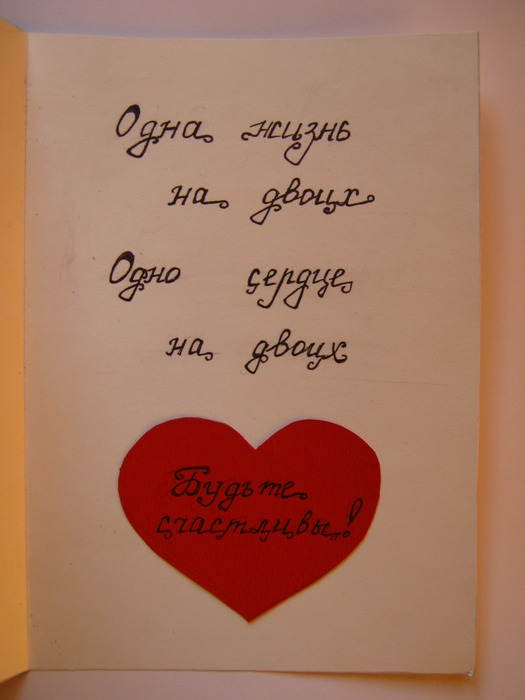 Одна жизнь
на двоих
Одно сердце
на двоих
Будьте
счастливы!